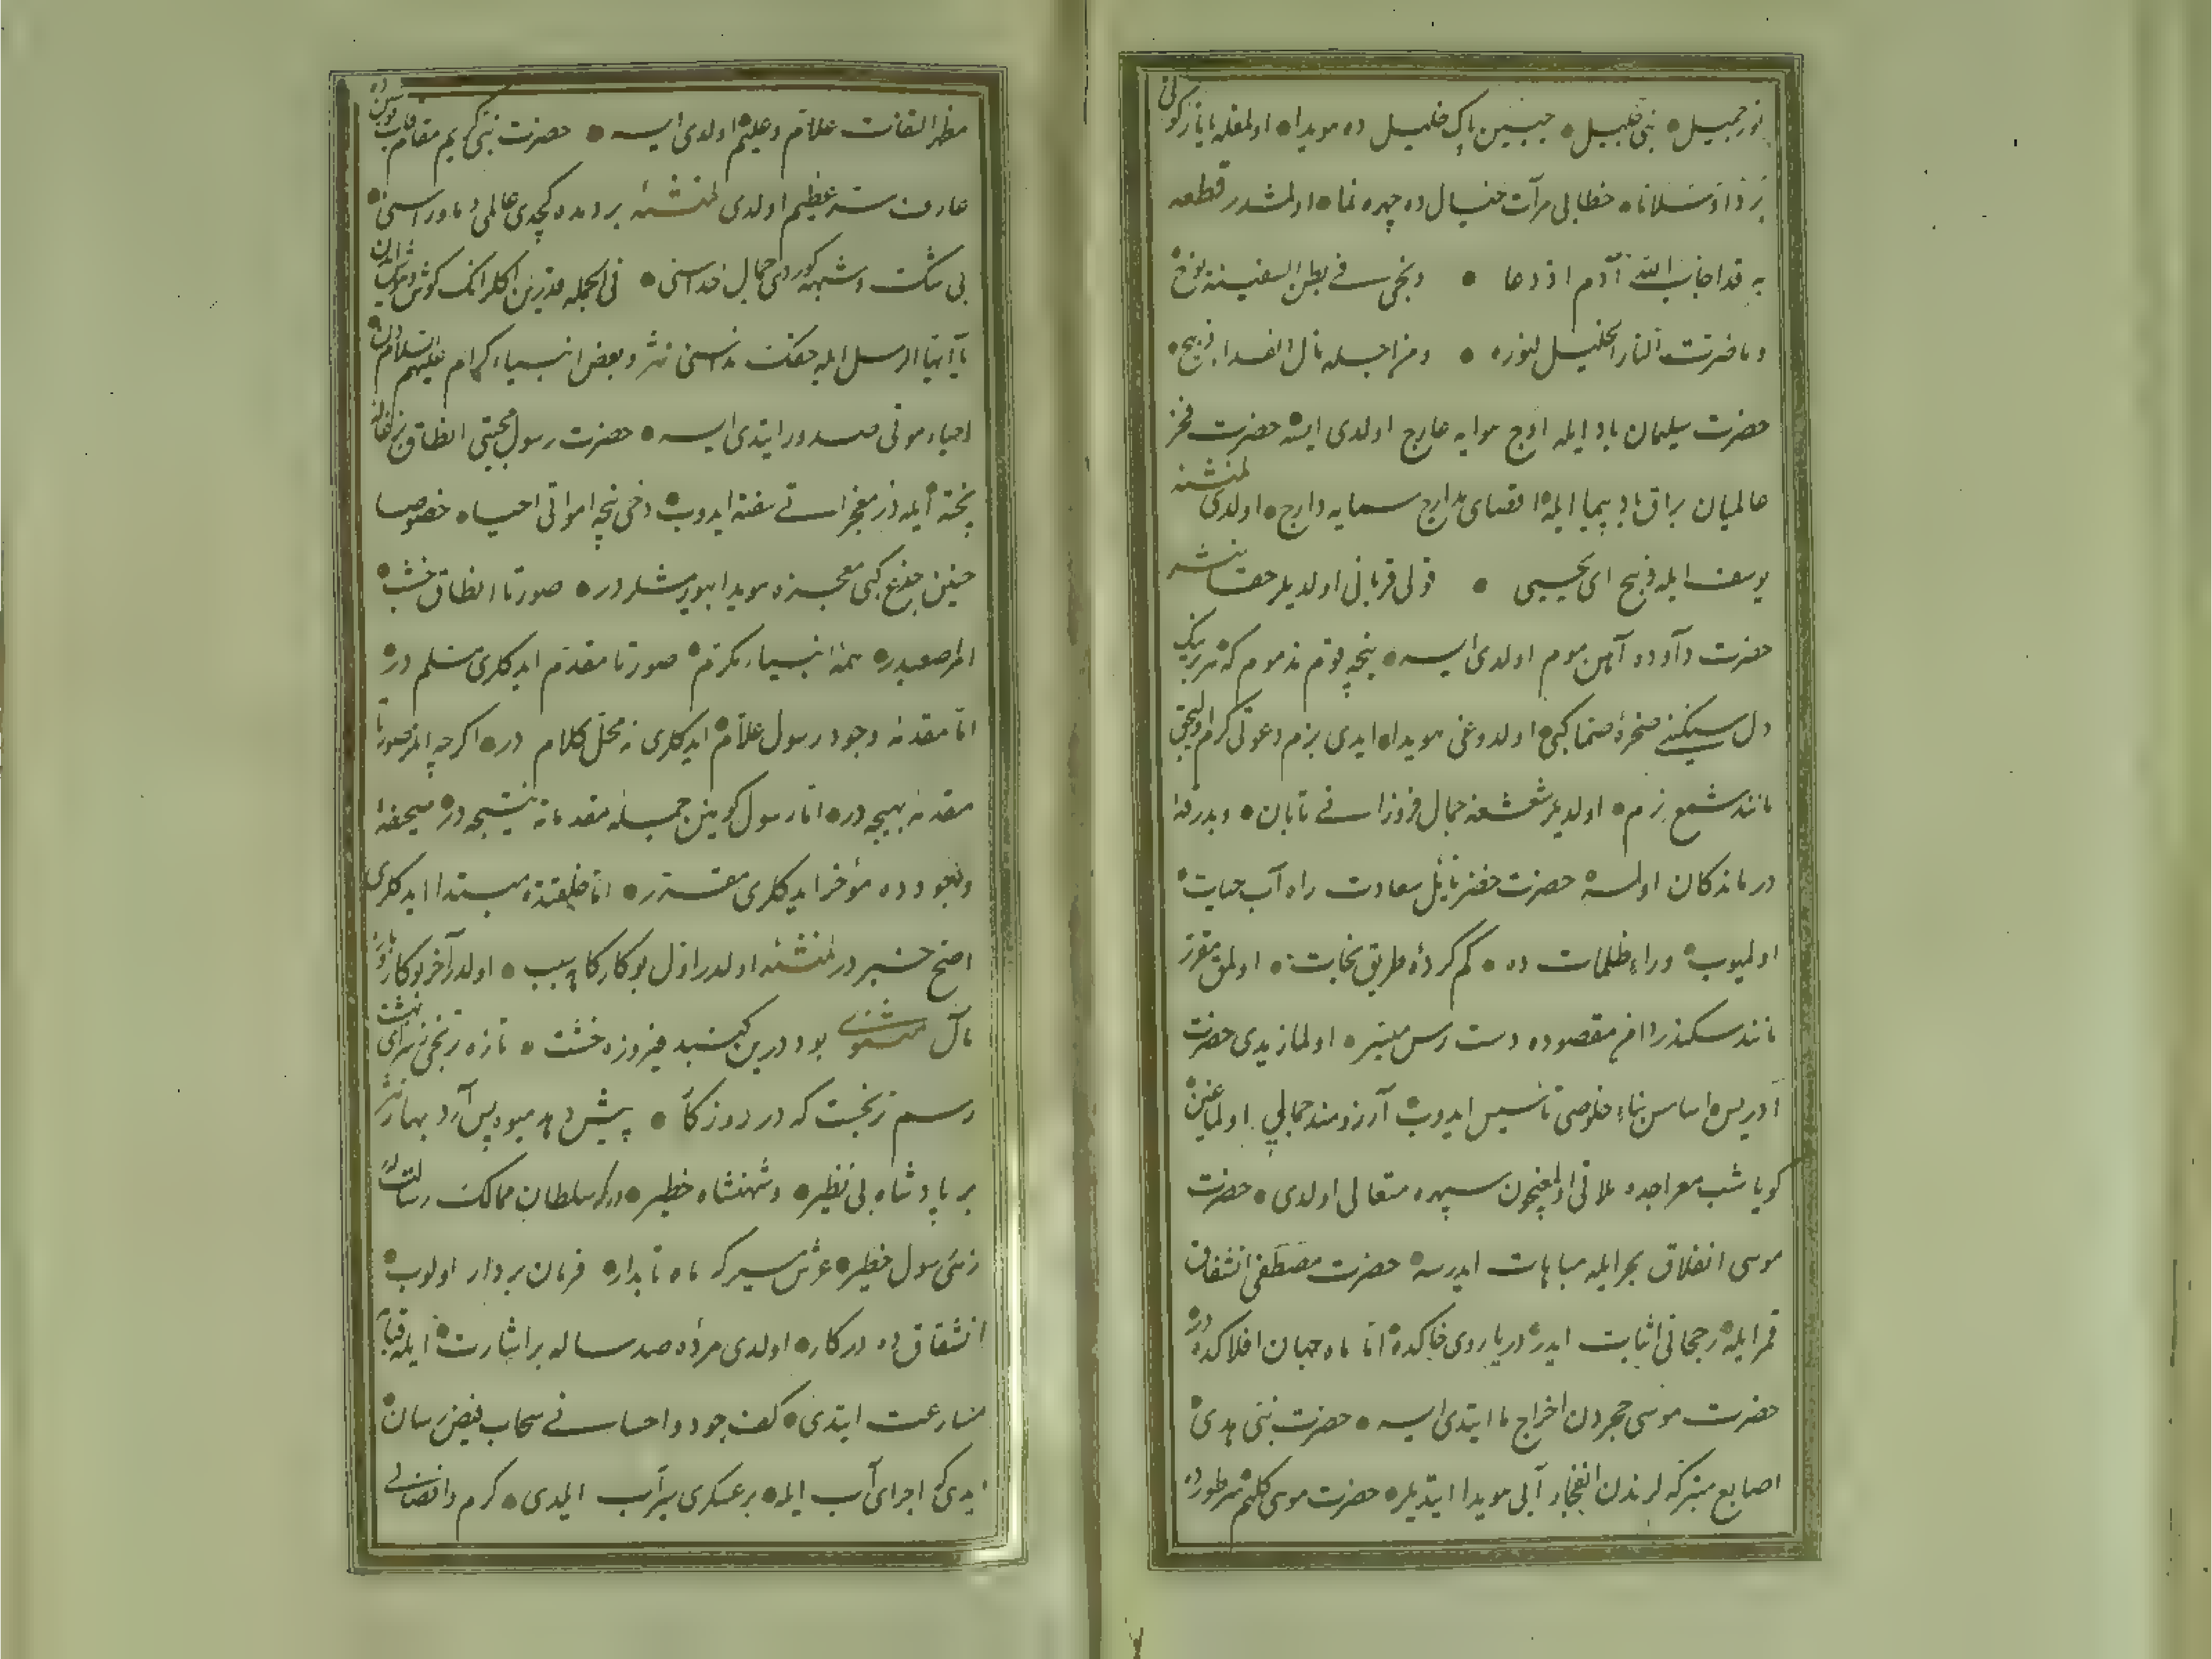 نور جمیل • نبی جلیل • جبین پاک خلیل ده هویدا • اولمغله یا نار کونی
بردا وسلاما • خطابی مرآت خیال ده چهره نما • اولمشدر قطعه
به قد اجاب الله آدم اذ دعا • ونجی فی بطن السفینة نوح
وما ضرت النار الخلیل لنوره • ومن اجله نال الفداء ذبیح •
حضرت سلیمان باد ایله اوج هوایه عارج اولدی ایسه حضرت فخر
عالمیان براق باد پیما ایله اقصای مدارج سمایه دارج • اولدی لمنشئه
یوسف ایله ذبیح ای یحیی • قولی قربانی اولدیلر حقا
حضرت داودده آهن موم اولدی ایسه • نیجه قوم مذموم که هر برینک
دل سنکینی صخرهٔ صما کبی اولدوغی هویدا ایدی بزم دعوتی
مانند شمع بزم • اولدیلر شعشعه جمال فروزانی تابان • وبدرقه
درماندکان اولسه حضرت خضر نائل سعادت راه آب حیات
اولمیوب وراء ظلمات ده • کم کردهٔ طریق نجات • اولمق مقرر
مانند سکندر دامن مقصوده دست رس میسر • اولمازیدی حضرت
ادریس اساس بناء خلوصی تأسیس ایدوب آرزومند جمالی اولماغین
کویا شب معراجده ملاقی اولمغیچون سپهره متعالی اولدی • حضرت
موسی انفلاق بحر ایله مباهات ایدرسه حضرت مصطفی انشقاق
قمر ایله رجحانی اثبات ایدر دریا روی خاکده اما ماه جهان افلاکده در
حضرت موسی حجردن اخراج ما ایتدی ایسه • حضرت نبی هدی
اصابع متبرکه لرندن انفجار آبی هویدا ایتدیلر • حضرت موسی کلیم طورده
مظهر التفات علام وعلیم اولدی ایسه • حضرت نبی کریم مقام قاب قوسین ده
عارف ستر عظیم اولدی لمنشئه بر دمده کچدی عالمی وماوراسنی
بی شک وشبهه کوردی جمال خداسنی • فی الجمله قدرین اکلر انک کوش
یا ایها الرسل ایله حقک نداسنی نثر وبعض انبیاء کرام علیهم السلامدن
احیاء موتی صدور ایتدی ایسه • حضرت رسول مجتبی انطاق بزغاله
پخته ایله در معجزاتی سفته ایدوب دخی نیجه امواتی احیا • خصوصا
حنین جذع کبی معجزه هویدا بیورمشلردر • صورتا انطاق خشب
امر صعبدر • همه انبیاء مکرم صورتا مقدم ایدکلری مسلم در
اما مقدمه وجود رسول علام ایدکلری نه محل کلام در • اکرچه امر صورتا
مقدمه بهیجه در • اما رسول کونین جمله مقدماته نتیجه در صحیفه
وجوده مؤخر ایدکلری مقرر • اما خلقتده مبتدا ایدکلری
اصح خبر در لمنشئه اولدر اول بو کارکاه سبب • اولدر آخر بو کار
مآل مثنوی بود درین کنبد فیروزه خشت • تازه ترنجی ز سرای بهشت
رسم ترنجست که در روزکار • پیش دهد میوه پس آرد بهار نثر
بر پادشاه بی نظیر • وشهنشاه خطیر • در که سلطان ممالک رسالت
زهی رسول خطیر • عرش سیر که ماه تابدار • فرمان بردار اولوب
انشقاق ده در کار • اولدی مرده صد ساله بر اشارت ایله قیامه
مسارعت ایتدی • کف جود واحسانی سحاب فیض رسان
ایدی که اجرای آب ایله • بر عسکری سیرآب ایلدی • کرم وافضالی